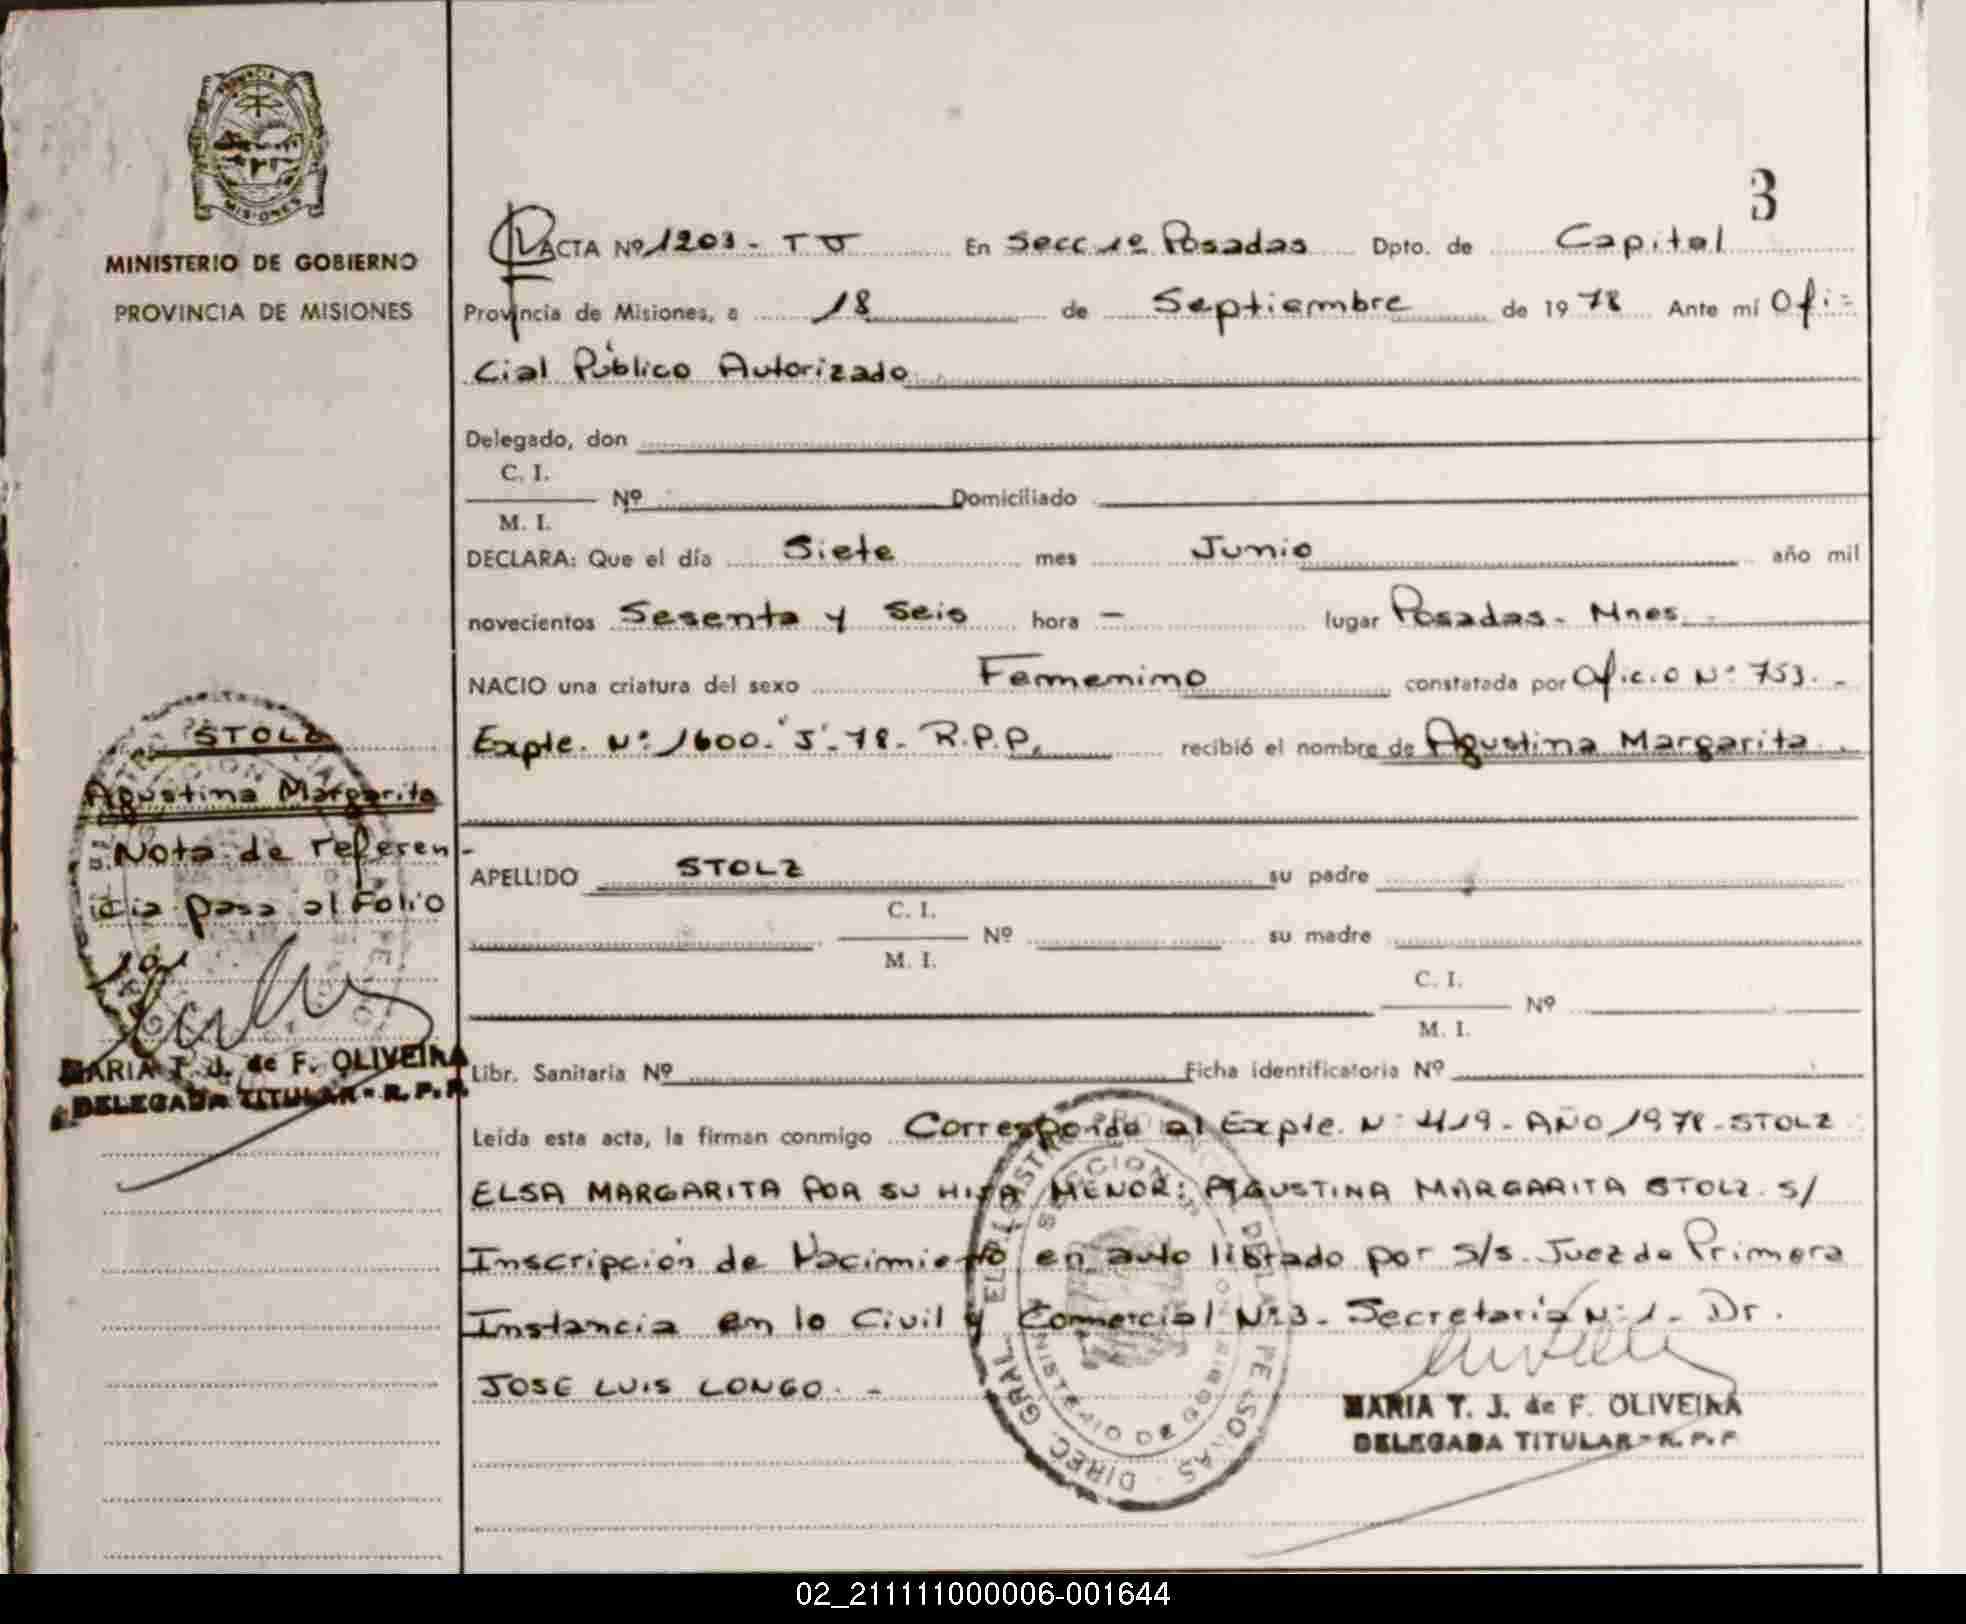 PROVINCIA DE
MISIONES
MINISTERIO DE GOBIERNO
PROVINCIA DE MISIONES
STOLZ
Agustina Margarita
Nota de referen-
cia pasa al Folio
101
MARIA T. J. de F. OLIVEIRA
DELEGADA TITULAR - R. P. P.
3
ACTA Nº 1203 - TU En Secc 1º Posadas Dpto. de Capital
Provincia de Misiones, a 18 de Septiembre de 1978 Ante mí Ofi-
cial Público Autorizado
Delegado, don
C. I.
Nº Domiciliado
M. I.
DECLARA: Que el día Siete mes Junio año mil
novecientos Sesenta y Seis hora - lugar Posadas - Mnes.
NACIO una criatura del sexo Femenino constatada por Oficio Nº 753. -
Expte. Nº 1600 - "J" - 78 - R.P.P. recibió el nombre de Agustina Margarita
APELLIDO STOLZ su padre
C. I.
Nº su madre
M. I.
C. I.
Nº
M. I.
Libr. Sanitaria Nº Ficha identificatoria Nº
Leída esta acta, la firman conmigo Corresponde al Expte. Nº 419 - AÑO 1978 - STOLZ
ELSA MARGARITA POR SU HIJA MENOR: AGUSTINA MARGARITA STOLZ s/
Inscripción de Nacimiento en auto librado por S/S. Juez de Primera
Instancia en lo Civil y Comercial Nº 3 - Secretaría Nº 1 - Dr.
JOSE LUIS LONGO. -
MARIA T. J. de F. OLIVEIRA
DELEGADA TITULAR - R. P. P
02_211111000006-001644